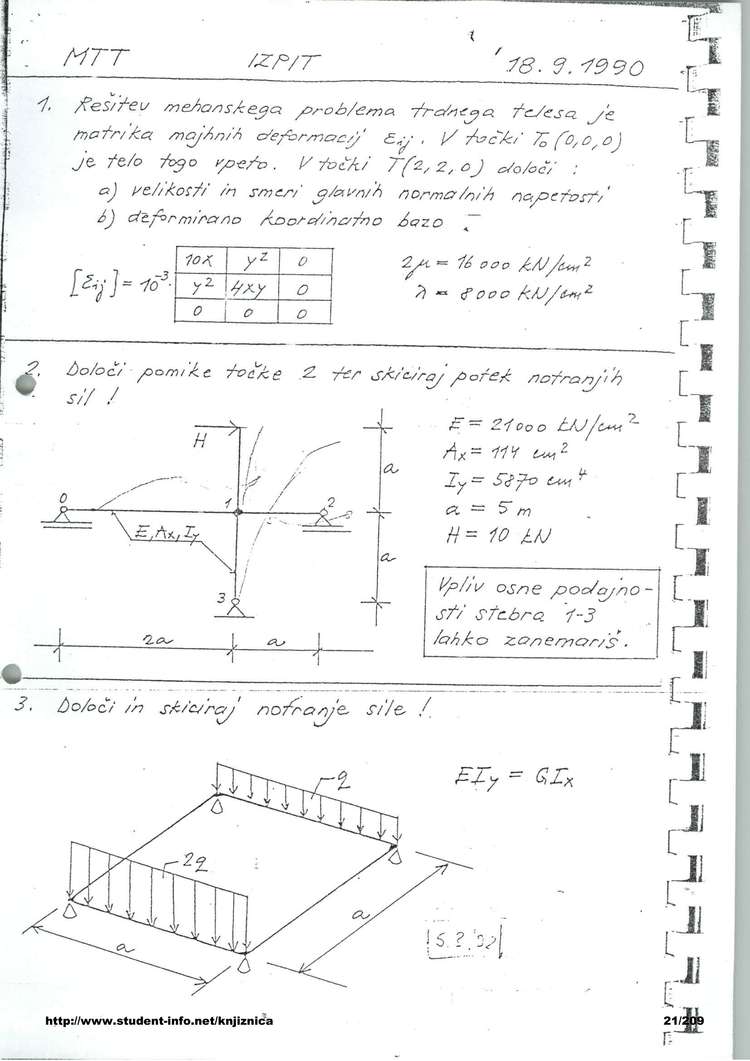 MTT IZPIT 18.9.1990
1. Rešitev mehanskega problema trdnega telesa je
matrika majhnih deformacij εij. V točki T₀(0,0,0)
je telo togo vpeto. V točki T(2,2,0) določi :
a) velikosti in smeri glavnih normalnih napetosti
b) deformirano koordinatno bazo
[εij] = 10⁻³·
10x y² 0
y² 4xy 0
0 0 0
2μ = 16 000 kN/cm²
λ = 8000 kN/cm²
2. Določi pomike točke 2 ter skiciraj potek notranjih
sil !
H
a
0
1
2
E, Ax, Iy
a
3
2a a
E = 21000 kN/cm²
Ax = 114 cm²
Iy = 5870 cm⁴
a = 5 m
H = 10 kN
Vpliv osne podajno-
sti stebra 1-3
lahko zanemariš.
3. Določi in skiciraj notranje sile !
q
2q
a
a
EIy = GIx
http://www.student-info.net/knjiznica
21/209